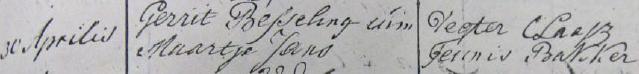 30 Aprilis
Gerrit Besseling cum
Maartje Jans
Vegter Claasz
Teunis Bakker